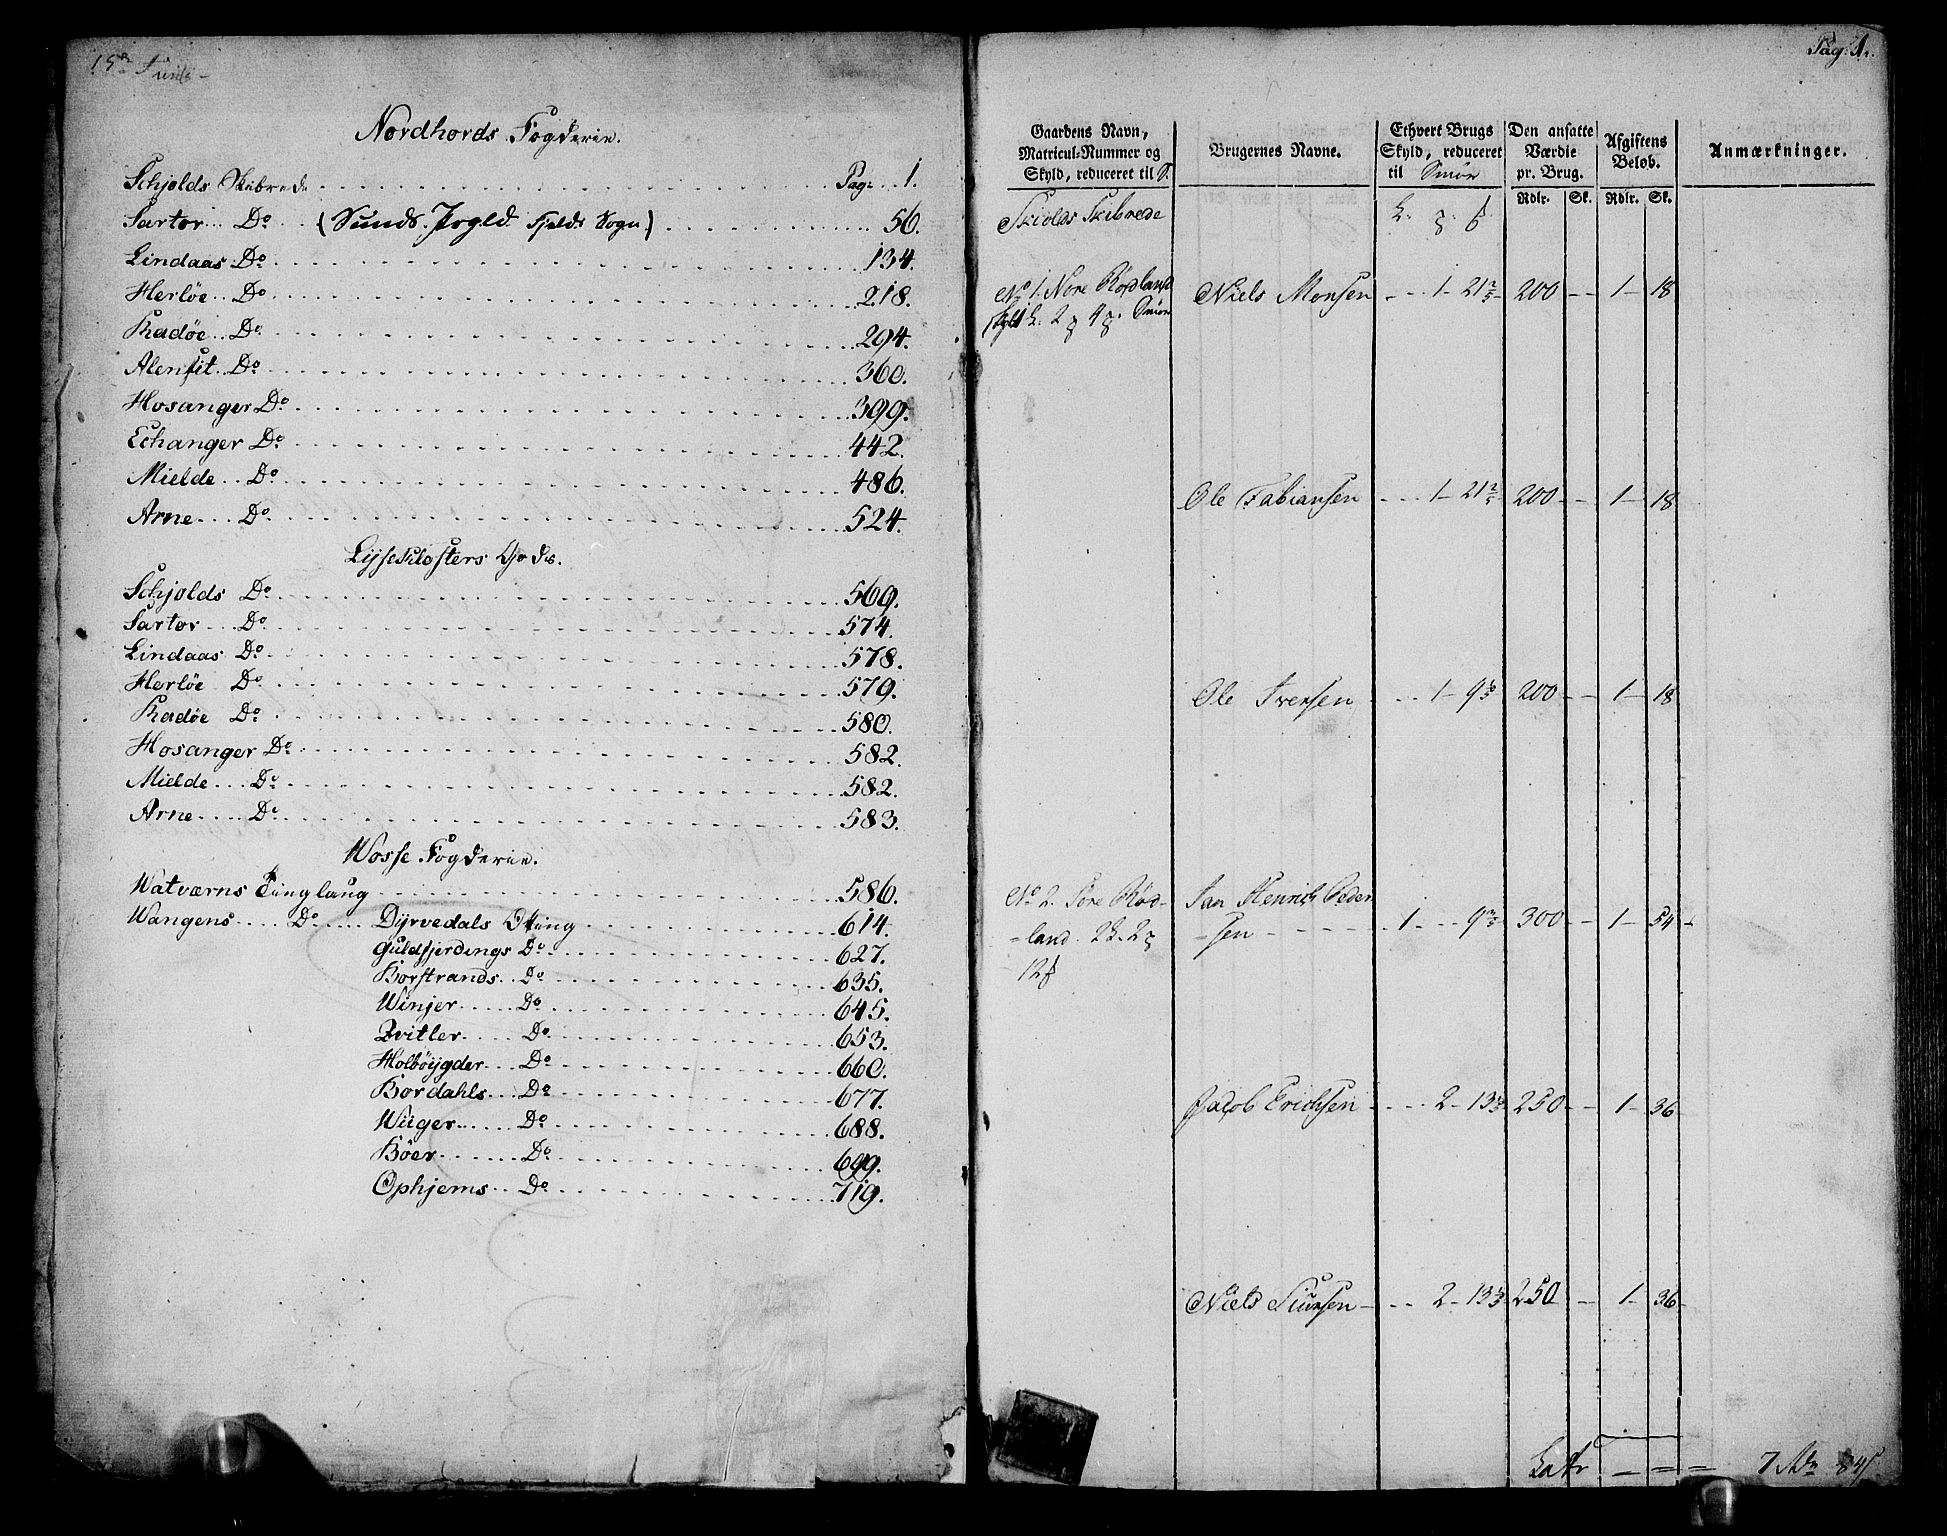 Nordhords Fogderie.
Schjolds Skibrede . . . Pag: . . . 1.
Sartor . . . Do . . (Sunds. Fjelds Sogn) . . . 56.
Lindaas Do . . . 134.
Herløe . . Do . . . 218.
Radøe . . Do . . . 294.
Alenfit . . Do . . . 360.
Hosanger Do . . . 399.
Echanger Do . . . 442.
Mielde . . Do . . . 486.
Arne . . . Do . . . 524.
Lyseklosters Gods.
Schjolds Do . . . 569.
Sartor . . . Do . . . 574.
Lindaas Do . . . 578.
Herløe Do . . . 579.
Radøe Do . . . 580.
Hosanger Do . . . 582.
Mielde . . . Do . . . 582.
Arne . . . . Do . . . 583.
Wosse Fogderie.
Watværns Tinglaug . . . 586.
Wangens . . . Do . . . Dyrvedals Otting . . . 614.
Guldfjerdings Do . . . 627.
Borstrands . . Do . . . 635.
Winjer . . . Do . . . 645.
Qvitler . . . Do . . . 653.
Holbøygder . . . Do . . . 660.
Bordahls . . . Do . . . 677.
Wiiger . . . Do . . . 688.
Bøer . . . Do . . . 699.
Ophjems . . Do . . . 719.
Pag: 1.
Gaardens Navn, Matricul-Nummer og Skyld, reduceret til S.
Brugernes Navne.
Ethvert Brugs Skyld, reduceret til Smør
Den ansatte Værdie pr. Brug.
Afgiftens Beløb.
Anmærkninger.
Rdlr. Sk. Rdlr. Sk.
Skiolds Skibrede
No 1. Nore Rødland Niels Monsen - - - 1 - 21 2/5 200 - - 1 - 18
Skyld L. 2 4 Smør
Ole Fabiansen - - - 1 - 21 2/5 200 - - 1 - 18
Ole Iversen - - - 1 - 9 3/5 200 - - 1 - 18
No 2. Søre Rød- Jan Henrich Peder
-land. 2 2 -sen - - - 1 - - - 9 3/5 300 - - 1 - 54
12
Jacob Erichsen - - - 2 - 13 250 - - 1 - 36
Niels Siursen - - - 2 - 13 250 - - 1 - 36
Latr - - - 7 84